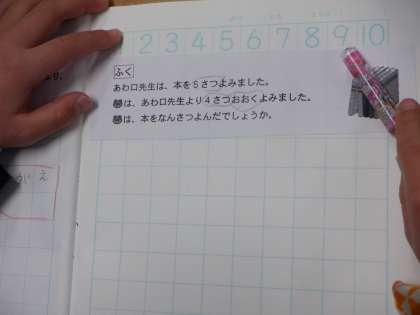 2 3 4 5 6 7 8 9 10
ふく
あわ口先生は、本を5さつよみました。
は、あわ口先生より4さつおおくよみました。
は、本をなんさつよんだでしょうか。